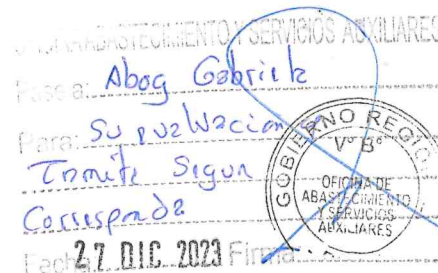 ABASTECIMIENTO Y SERVICIOS AUXILIARES
Pase a: Abog Gabriela
Para: Su evaluacion
Tramite Segun
Corresponda
Fecha 27 DIC. 2023 Firma
GOBIERNO REGIO
V° B°
OFICINA DE
ABASTECIMIENTO
Y SERVICIOS
AUXILIARES